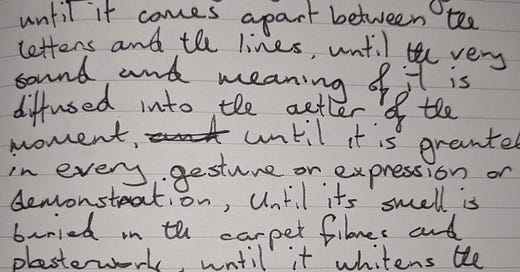 until it comes apart between the
letters and the lines, until the very
sound and meaning of it is
diffused into the aether of the
moment, and until it is granted
in every gesture or expression or
demonstration, Until its smell is
buried in the carpet fibres and
plasterwork, until it whitens the